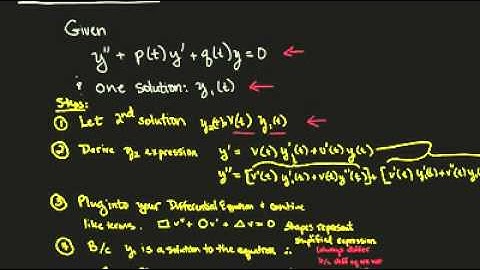 Given
y'' + p(t) y' + q(t)y = 0 ←
& one solution: y₁(t) ←
Steps:
① Let 2nd solution y₂(t)=v(t) y₁(t) ←
② Derive y₂ expression y' = v(t) y₁'(t) + v'(t) y(t)
y'' = [v'(t) y₁'(t) + v(t) y''(t)] + [v'(t) y₁'(t) + v''(t) y
③ Plug into your Differential Equation & combine
like terms. □ v'' + O v' + △ v = 0 shapes represent
simplified expression
④ B/c y₁ is a solution to the equation ∴ (always differ